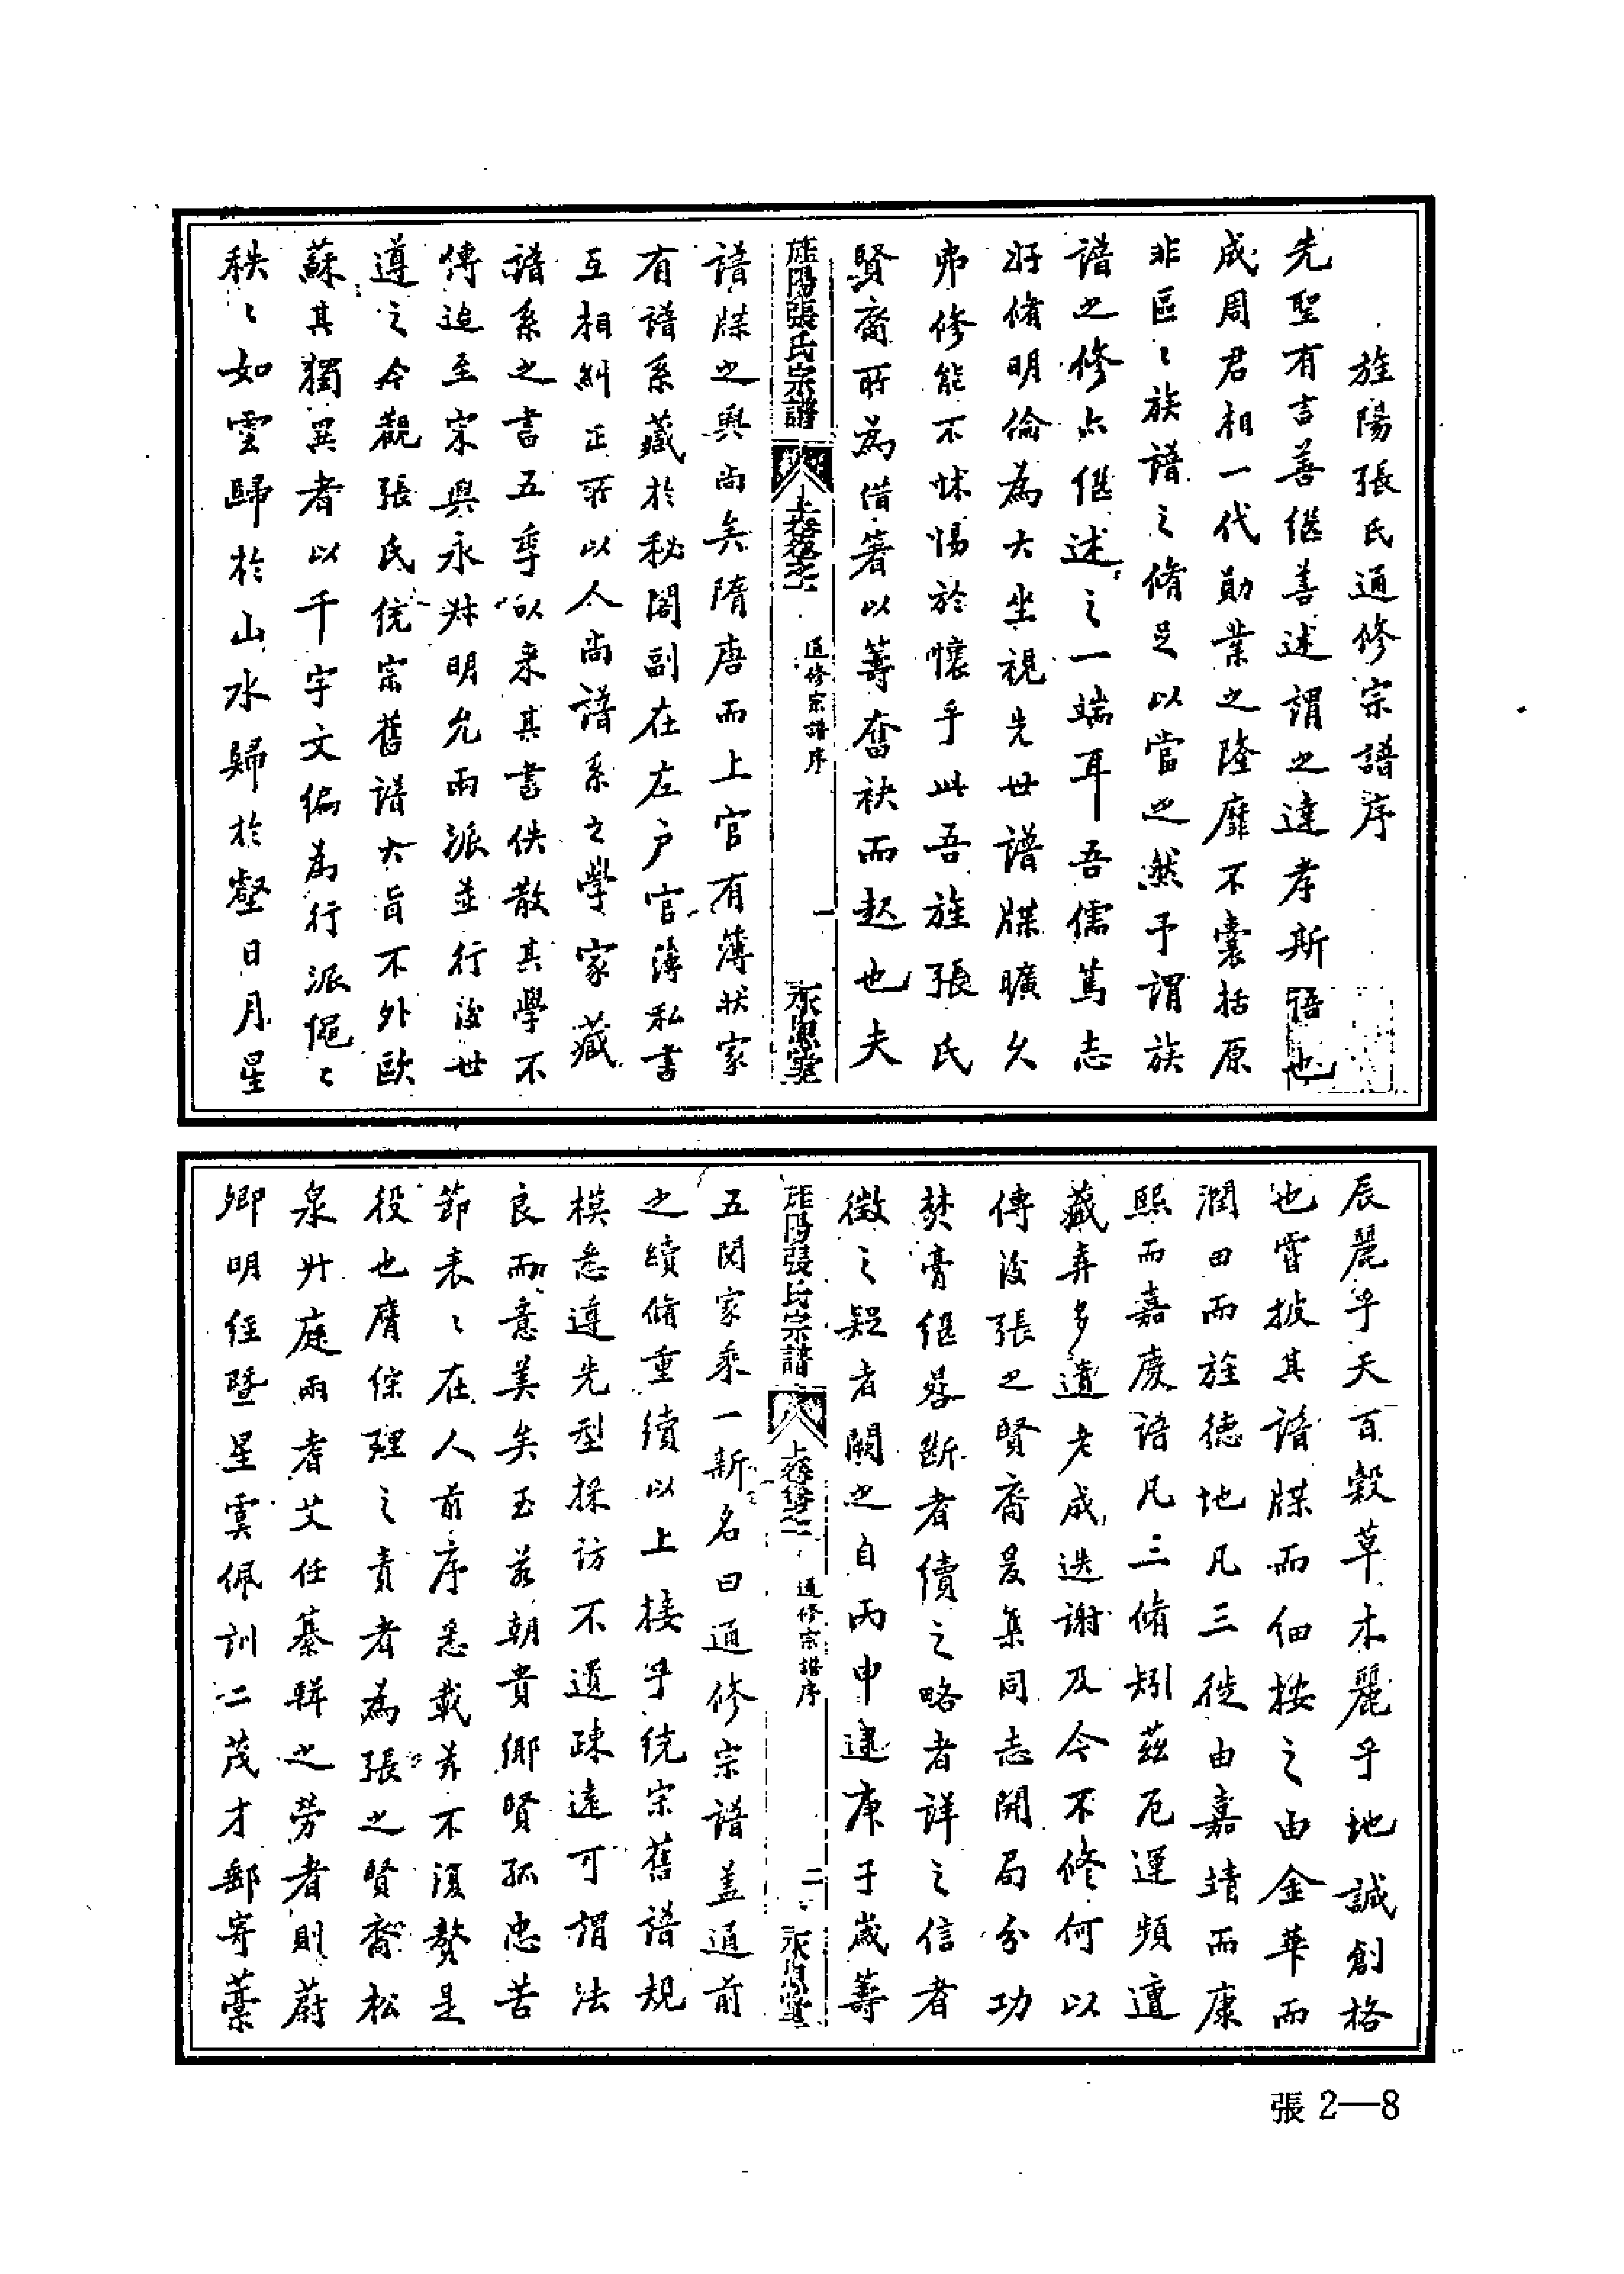 旌陽張氏通修宗譜序
先聖有言善繼善述謂之達孝斯語也
成周君相一代勛業之隆靡不囊括原
非區〻族譜之脩足以當之然予謂族
譜之修亦繼述之一端耳吾儒篤志
好脩明倫為大坐視先世譜牒曠久
弗修能不怵惕於懷乎此吾旌張氏
賢裔所為借箸以籌奮袂而起也夫
旌陽張氏宗譜 上卷之一 通修宗譜序 一 永思堂
譜牒之興尚矣隋唐而上官有薄狀家
有譜系藏於秘閣副在左户官薄私書
互相糾正所以人尚譜系之學家藏
譜系之書五季以来其書佚散其學不
傳迨至宋興永叔明允兩派並行後世
遵之今觀張氏統宗舊譜大旨不外歐
蘇其獨異者以千字文編為行派繩〻
秩〻如雲歸於山水歸於壑日月星
辰麗乎天百穀草木麗乎地誠創格
也嘗披其譜牒而細按之由金華而
潤田而旌德地凡三徙由嘉靖而康
熙而嘉慶譜凡三脩矧茲厄運頻遭
藏弆多遺老成迭謝及今不修何以
傳後張之賢裔爰集同志開局分功
焚膏繼晷斷者續之略者詳之信者
徵之疑者闕之自丙申建庚于歲籌
旌陽張氏宗譜 上卷之一 通修宗譜序 二 永思堂
五閱家乘一新名曰通修宗譜盖通前
之續脩重續以上接乎統宗舊譜規
模悉遵先型採訪不遺疎遠可謂法
良而意美矣至若朝貴鄉賢孤忠苦
節表〻在人前序悉載茲不復贅是
役也膺綜理之責者為張之賢裔松
泉州庭兩耆艾任纂輯之勞者則蔚
卿明經暨星雲佩訓二茂才郵寄藁
張 2—8